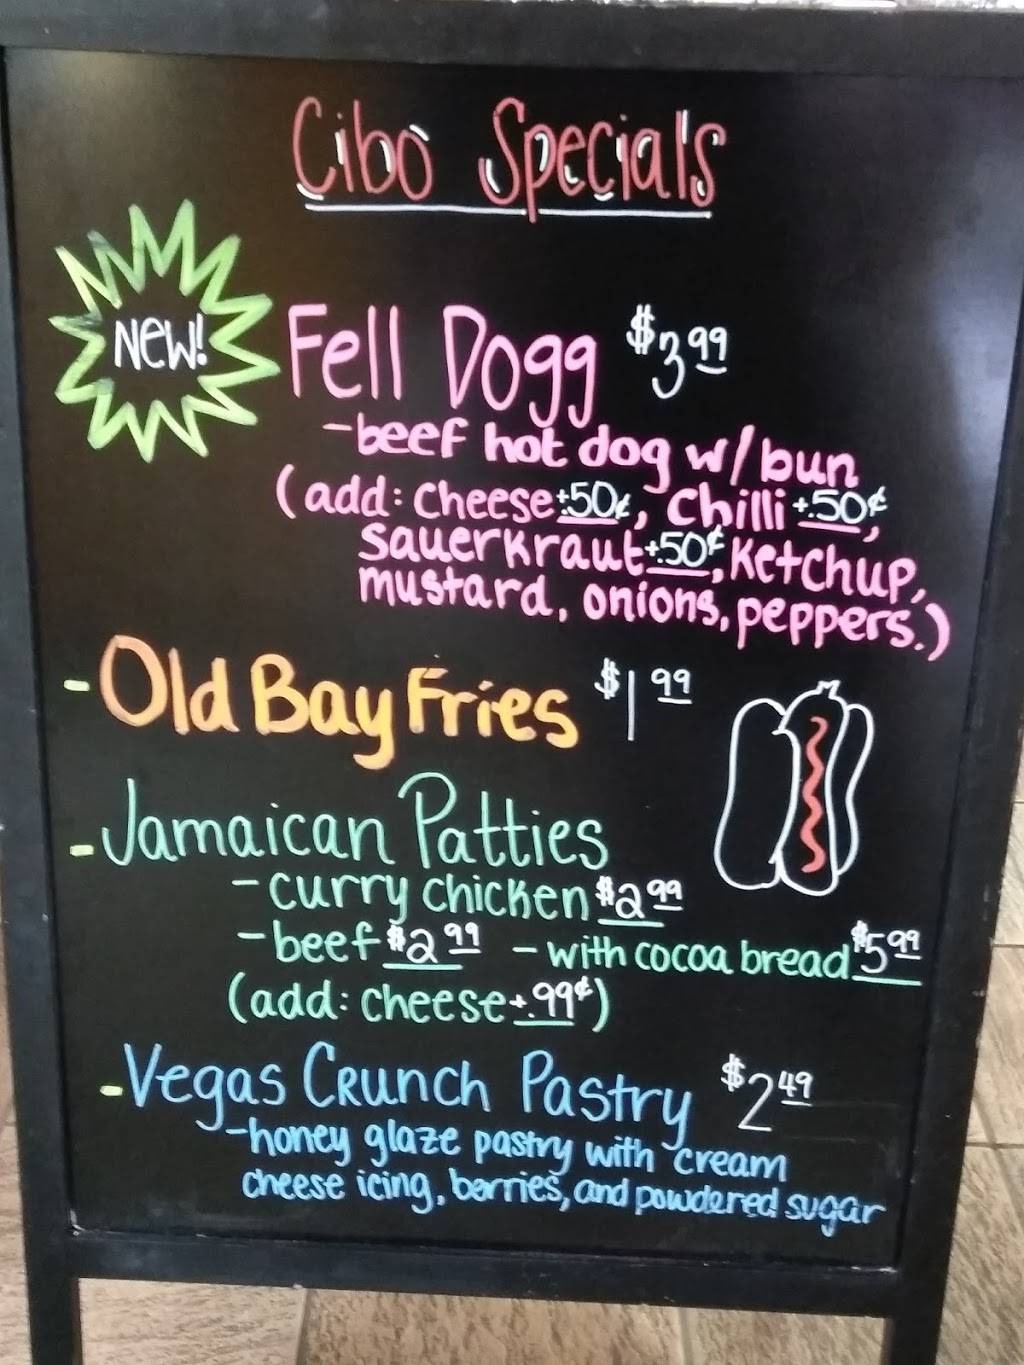 Cibo Specials
New!
Fell Dogg $3.99
-beef hot dog w/bun
(add: cheese +.50¢, Chilli +.50¢,
sauerkraut +.50¢, ketchup,
mustard, onions, peppers.)
- Old Bay Fries $1.99
- Jamaican Patties
- curry chicken $2.99
- beef $2.99 - with cocoa bread $5.99
(add: cheese +.99¢)
- Vegas Crunch Pastry $2.49
-honey glaze pastry with cream
cheese icing, berries, and powdered sugar